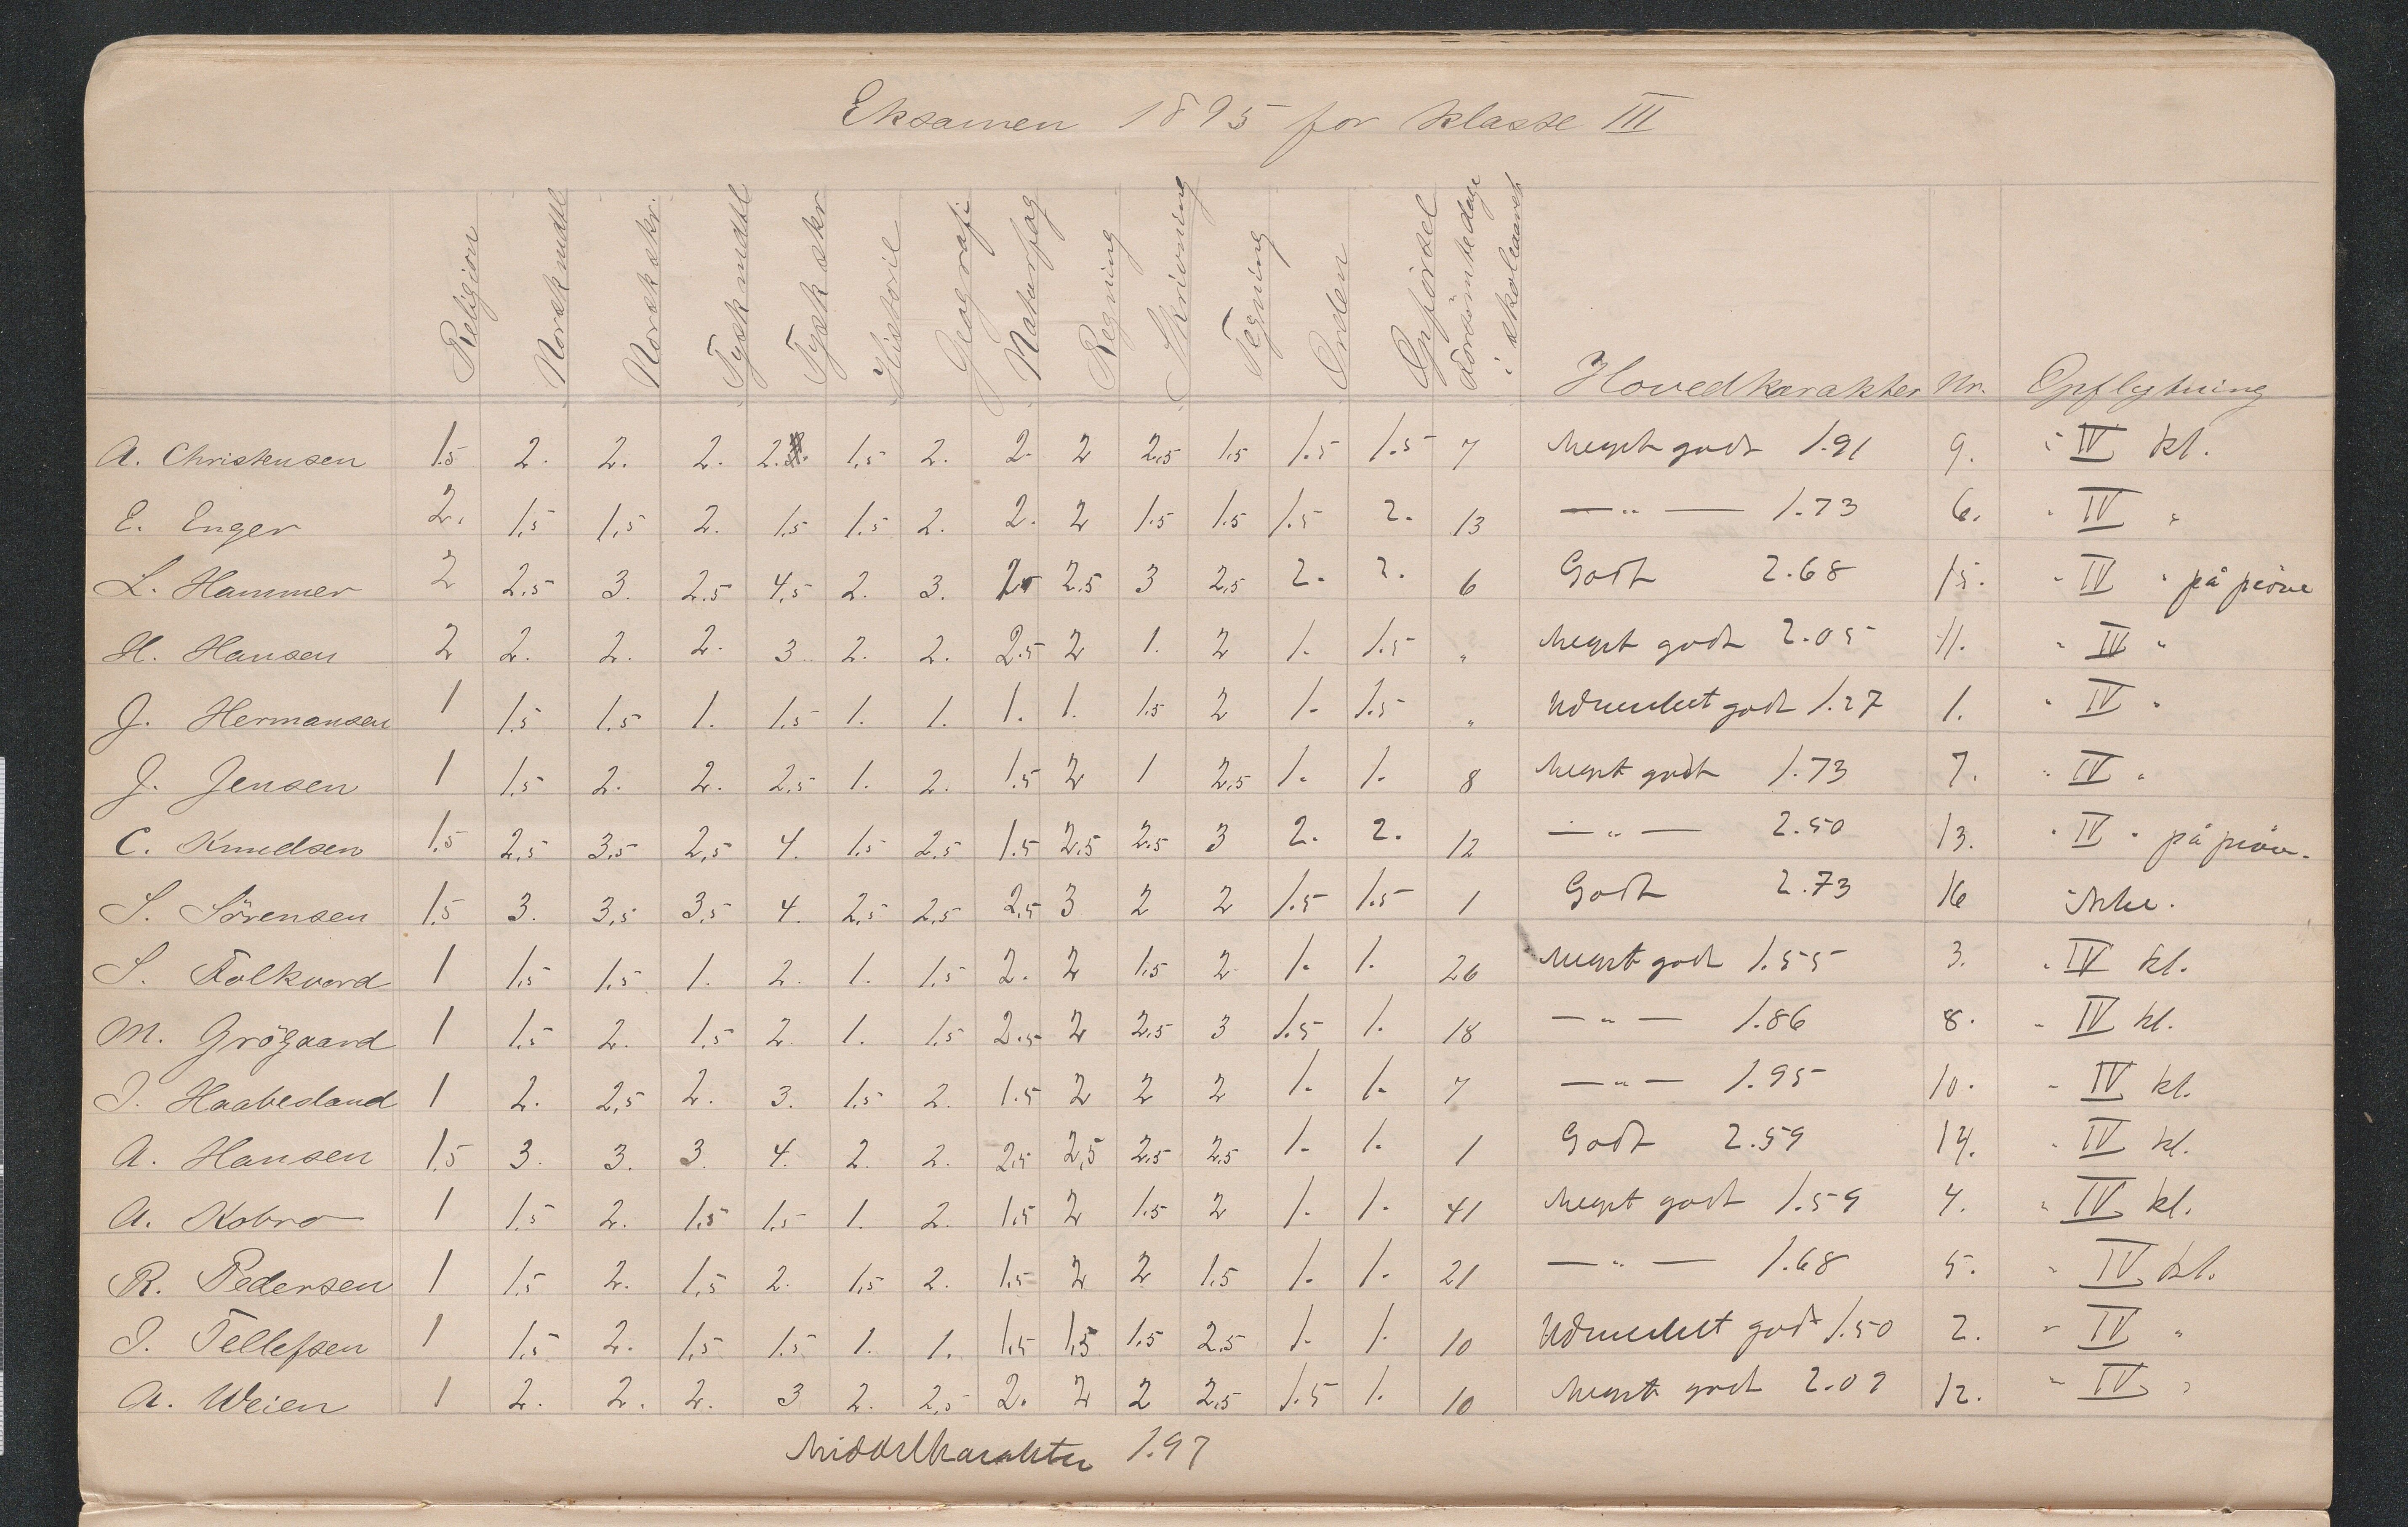 Eksamen 1895 for klasse III
Religion Norsk mdtl Norsk skr. Tysk mdtl Tysk skr Historie Geografi Naturfag Regning Skrivning Tegning Orden Opförsel Forsömte dage i skoleaaret Hovedkarakter Nr. Opflytning
A. Christensen 1.5 2. 2. 2. 2. 1,5 2. 2. 2 2,5 1.5 1.5 1.5 7 Meget godt 1.91 9. i IV kl.
E. Enger 2. 1,5 1,5 2. 1,5 1.5 2. 2. 2 1.5 1.5 1.5 2. 13 — " — 1.73 6. " IV "
L. Hammer 2 2,5 3. 2.5 4,5 2. 3. 2.5 3 2,5 2. 2. 6 Godt 2.68 15. " IV " på pröve
H. Hansen 2 2. 2. 2. 3. 2. 2. 2.5 2 1. 2 1. 1.5 " Meget godt 2.05 11. " IV "
J. Hermansen 1 1.5 1.5 1. 1.5 1. 1. 1. 1. 1.5 2 1. 1.5 " Udmerket godt 1.27 1. " IV "
J. Jensen 1 1.5 2. 2. 2,5 1. 2. 1.5 2 1 2,5 1. 1. 8 Meget godt 1.73 7. " IV "
C. Knudsen 1.5 2,5 3,5 2,5 4. 1.5 2,5 1.5 2,5 2.5 3 2. 2. 12 — " — 2.50 13. " IV " på pröve.
S. Sörensen 1,5 3. 3,5 3,5 4. 2,5 2,5 2,5 3 2 2 1.5 1.5 1 Godt 2.73 16 ikke.
S. Folkvord 1 1,5 1,5 1. 2. 1. 1,5 2. 2 1.5 2 1. 1. 26 Meget godt 1.55 3. " IV kl.
M. Grögaard 1 1,5 2. 1,5 2. 1. 1,5 2.5 2 2,5 3 1.5 1. 18 — " — 1.86 8. " IV kl.
J. Haabesland 1 2. 2,5 2. 3. 1,5 2. 1.5 2 2 2 1. 1. 7 — " — 1.95 10. " IV kl.
A. Hansen 1,5 3. 3. 3. 4. 2. 2. 2,5 2,5 2.5 2,5 1. 1. 1 Godt 2.59 14. " IV kl.
A. Kobro 1 1.5 2. 1,5 1.5 1. 2. 1,5 2 1.5 2 1. 1. 41 Meget godt 1.59 4. " IV kl.
R. Pedersen 1 1.5 2. 1,5 2. 1,5 2. 1.5 2 2 1.5 1. 1. 21 — " — 1.68 5. " IV kl.
J. Tellefsen 1 1.5 2. 1,5 1.5 1. 1. 1,5 1,5 1.5 2.5 1. 1. 10 Udmerket godt 1.50 2. " IV "
A. Weien 1 2. 2. 2. 3 2. 2,5 2. 2 2 2,5 1.5 1. 10 Meget godt 2.09 12. " IV "
Middelkarakter 1.97